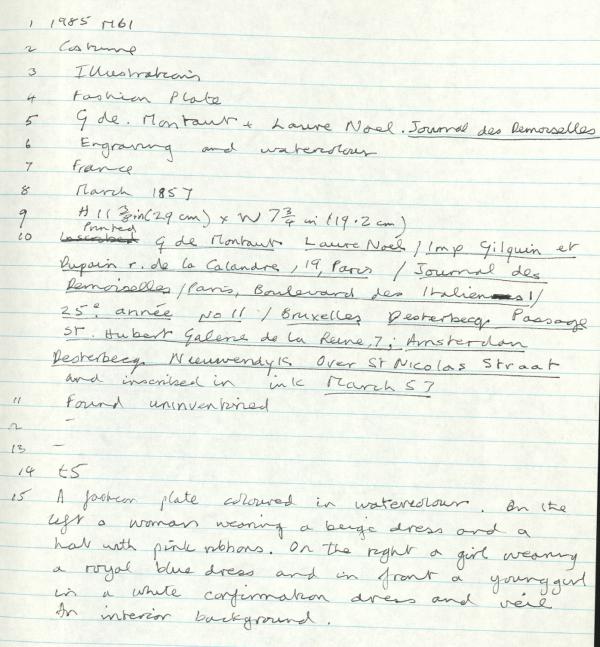 1 1985 M61
2 Costume
3 Illustrations
4 Fashion Plate
5 G de. Montaut + Laure Noel. Journal des Demoiselles
6 Engraving and watercolour
7 France
8 March 1857
9 H 11 3/8 in (29 cm) x W 7 3/4 in (19.2 cm)
Printed
10 Inscribed G de Montaut Laure Noel / Imp Gilquin et
Dupain r. de la Calandre, 19, Paris / Journal des
Demoiselles / Paris, Boulevard des Italiens 1/
25e. année No 11 / Bruxelles Desterbecq Passage
St. Hubert Galerie de la Reine. 7; Amsterdam
Desterbecq Nieuwendyk Over St Nicolas Straat
and inscribed in ink March 57
11 Found uninventoried
2 -
13 -
14 £5
15 A fashion plate coloured in watercolour. On the
left a woman wearing a beige dress and a
hat with pink ribbons. On the right a girl wearing
a royal blue dress and in front a young girl
in a white confirmation dress and veil
An interior background.